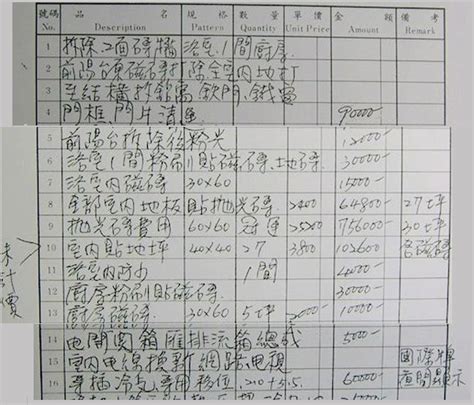 號碼 品名 規格 數量 單價 金額 備考
No. Description Pattern Quantity Unit Price Amount Remark
1 拆除2面磚牆 浴室1間廚房
2 前陽台頂磁磚打除全室內地打
3 至結構拆鋁窗 鐵門 鐵窗
4 門框門片清運 90000-
5 前陽台拆除後粉光 12000-
6 浴室1間粉刷貼磁磚.地磚 30000-
7 浴室內磁磚 30×60 15000-
8 全部室內地板貼拋光磚 2400 64800- 27坪
9 拋光磚費用 60×60 冠軍 756000- 30坪
10 室內貼地坪 40×40 27 3800 102600 含磁磚
11 浴室內防水 1間 4000-
12 廚房粉刷貼磁磚 30000-
13 廚房磁磚 30×60 5坪 2000- 10000-
14 電開關箱匯排流箱總成 5000-
15 室內電線換新網路.電視 國際牌
16 插冷氣專用移位 2.0+5.5 60000- 夜間顯示
未計價